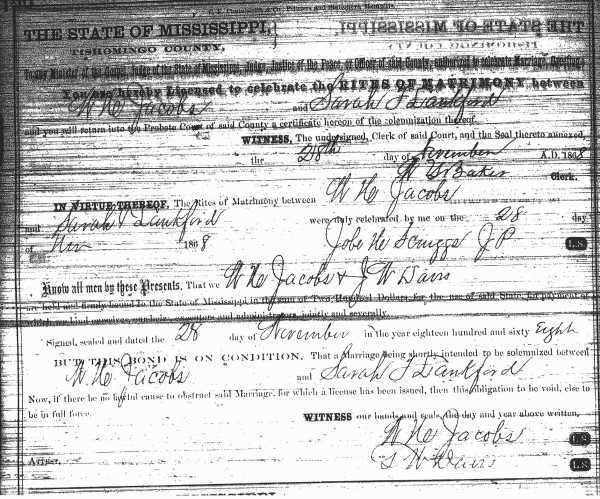 THE STATE OF MISSISSIPPI,
TISHOMINGO COUNTY.
To any Minister of the Gospel, Judge of the State of Mississippi, Judge, Justice of the Peace, or Officer of said County, authorized to celebrate Marriage, Greeting:
You are hereby Licensed to celebrate the RITES OF MATRIMONY between
W H Jacobs and Sarah F Lankford
and you will return into the Probate Court of said County a certificate hereon of the solemnization thereof.
WITNESS, The undersigned, Clerk of said Court, and the Seal thereto annexed,
the 28th day of November A.D. 1868
Baker Clerk.
IN VIRTUE THEREOF, The Rites of Matrimony between W H Jacobs
and Sarah F Lankford were duly celebrated by me on the 28 day
of Nov 1868 Jobe H Scruggs J P L.S
Know all men by these Presents, That we W H Jacobs & J W Davis
are held and firmly bound to the State of Mississippi in the sum of Two Hundred Dollars, for the use of said State, for payment of
which, we bind ourselves, our heirs, executors and administrators, jointly and severally.
Signed, sealed and dated the 28 day of November in the year eighteen hundred and sixty Eight
BUT THIS BOND IS ON CONDITION, That a Marriage being shortly intended to be solemnized between
W H Jacobs and Sarah F Lankford
Now, if there be no lawful cause to obstruct said Marriage, for which a license has been issued, then this obligation to be void, else to
be in full force.
WITNESS our hands and seals, the day and year above written,
W H Jacobs L.S
Attest, W Davis L.S